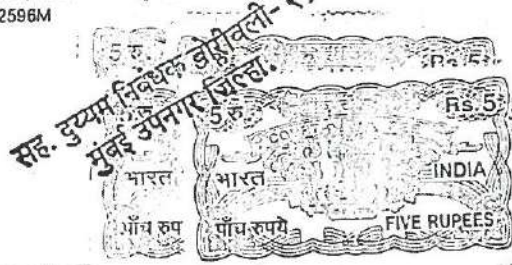 2596M
सह. दुय्यम निबंधक बोरीवली-२,
मुंबई उपनगर जिल्हा.
5 रु. Rs. 5
5 रु. Rs. 5
भारत भारत INDIA
पाँच रुप पाँच रुपये FIVE RUPEES